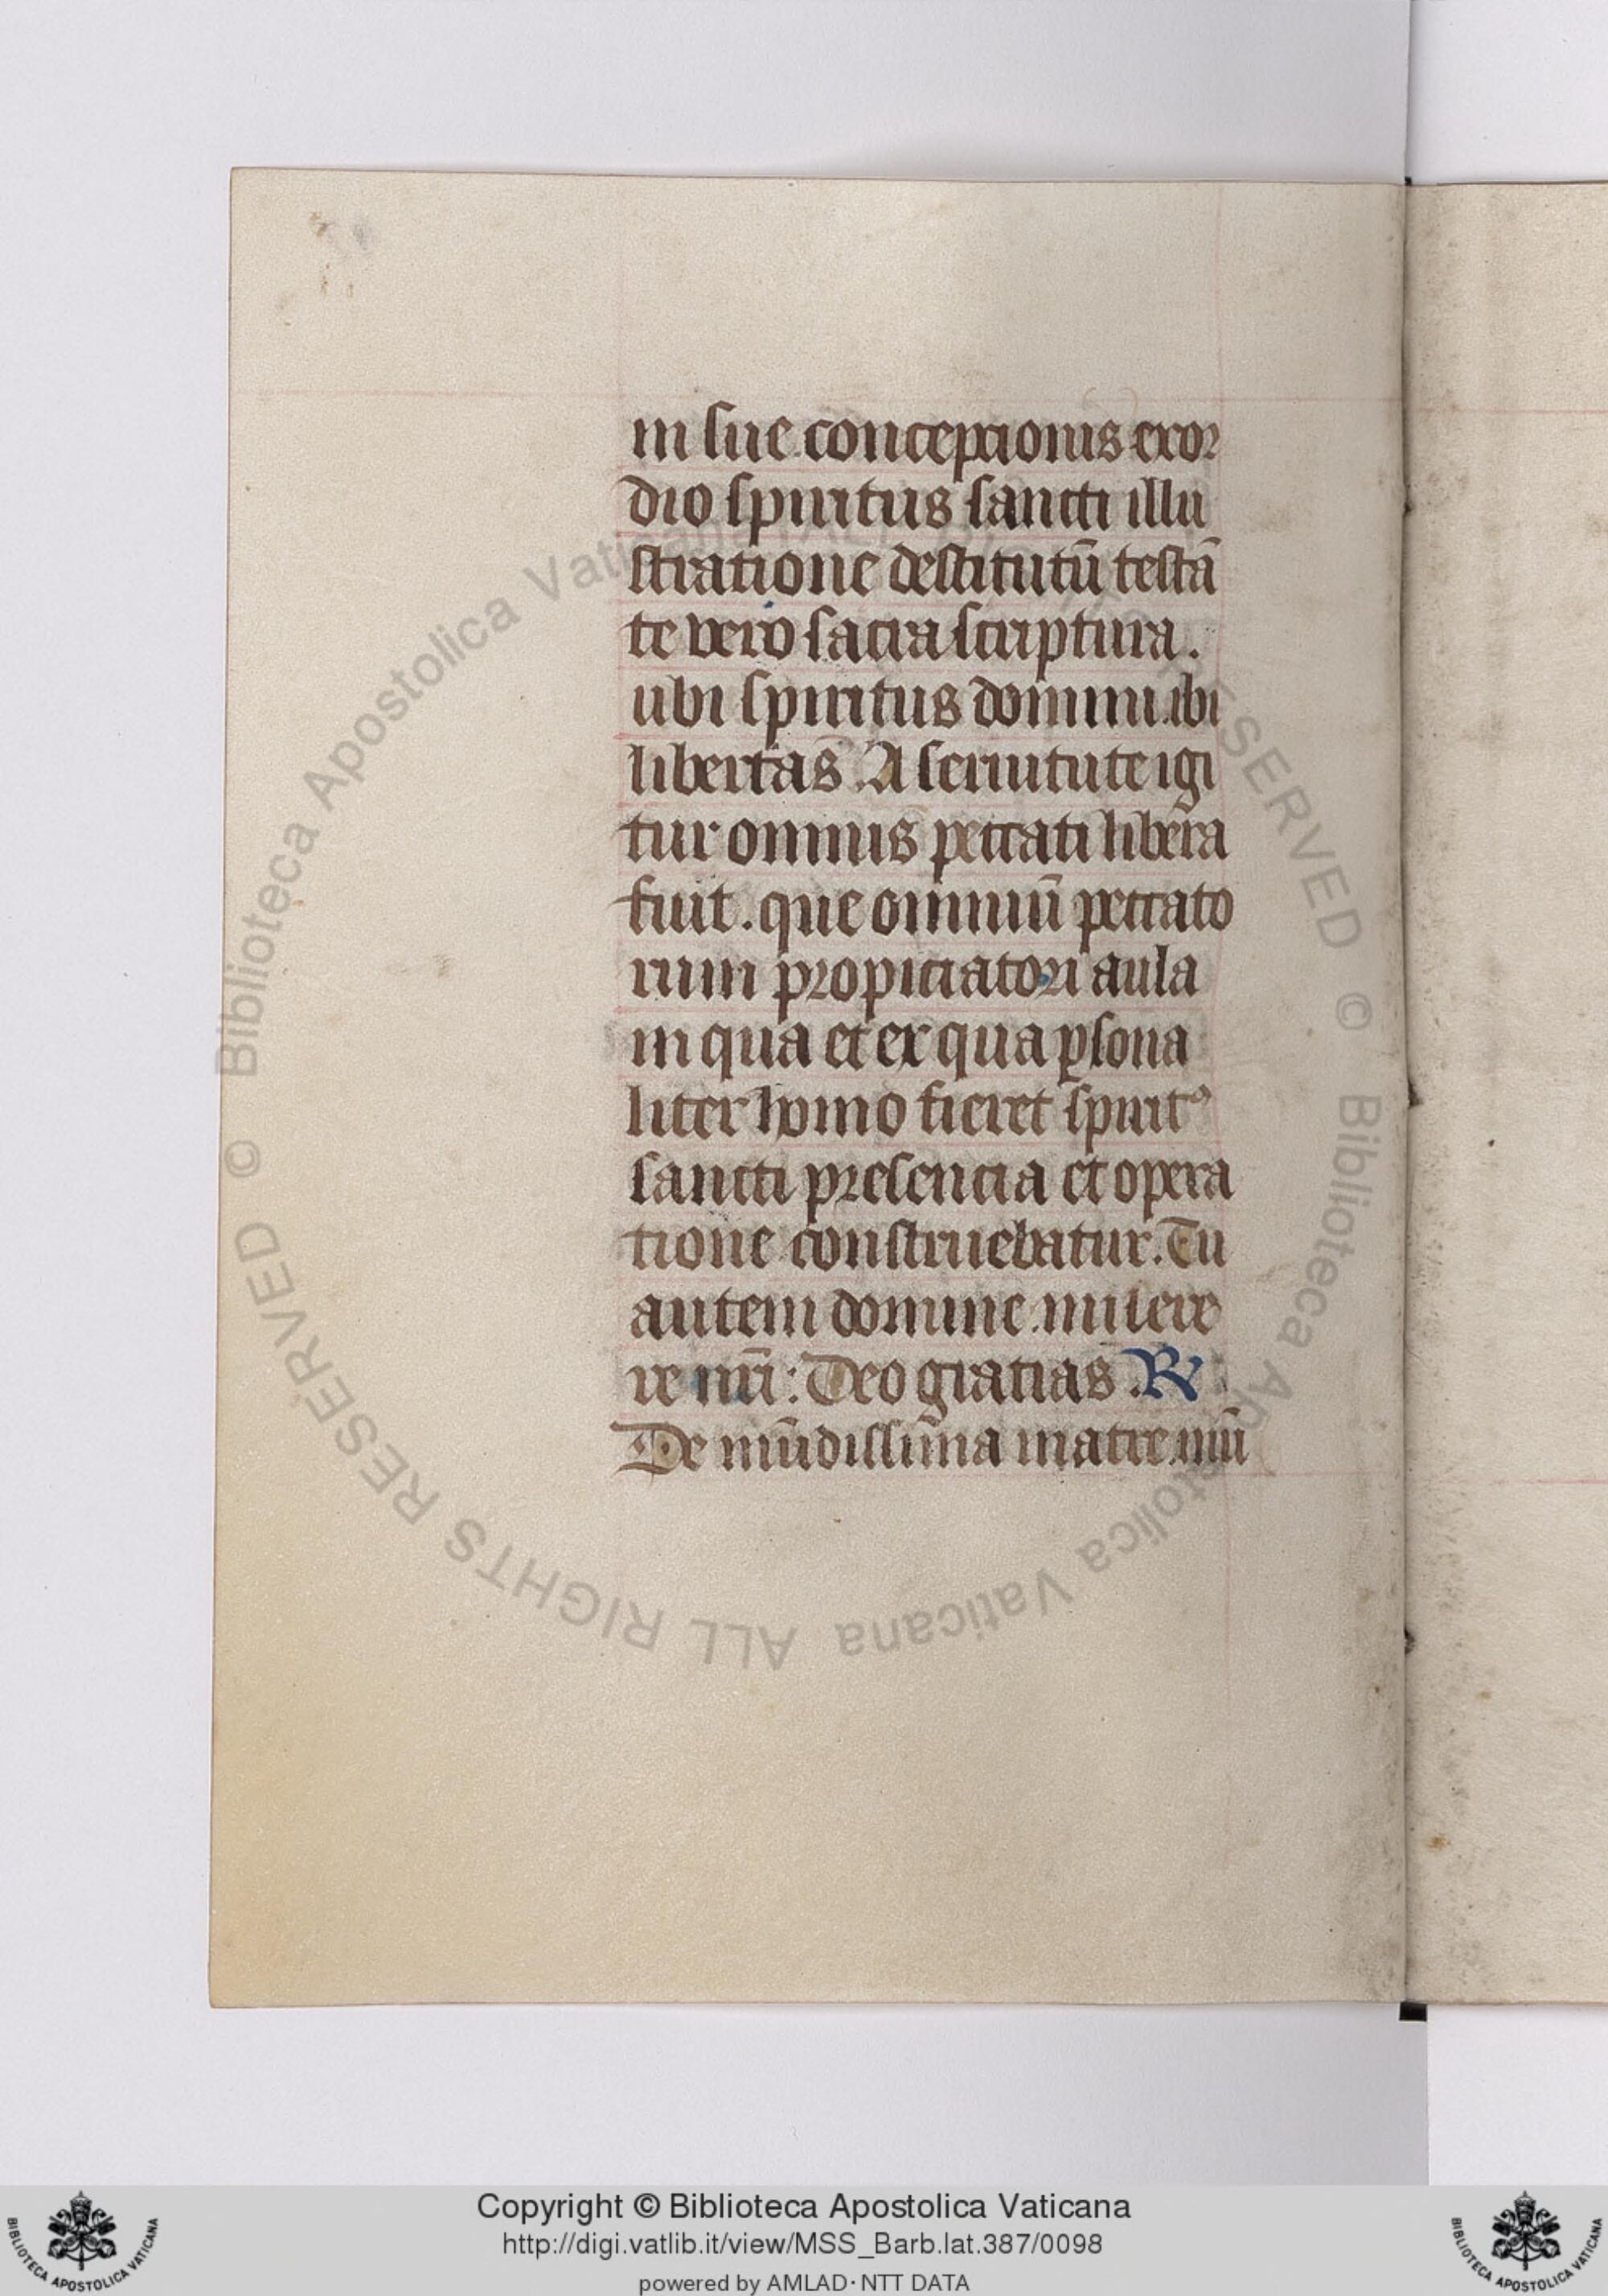 in sue conceptionis exor
dio spiritus sancti illu
stratione destitutū testā
te vero sacra scriptura.
ubi spiritus domini ibi
libertas. A seruitute igi
tur omnis peccati libera
fuit. que omniū peccato
rum propiciatori aula
in qua et ex qua ꝑsona
liter homo fieret spiritꝰ
sancti presencia et opera
tione construebatur. Tu
autem domine misere
re nr̄i: Deo gratias. R
De mūdissima matre mū
© Biblioteca Apostolica Vaticana ALL RIGHTS RESERVED © Biblioteca Apostolica Vaticana ALL RIGHTS RESERVED
Copyright © Biblioteca Apostolica Vaticana
http://digi.vatlib.it/view/MSS_Barb.lat.387/0098
powered by AMLAD·NTT DATA
BIBLIOTECA APOSTOLICA VATICANA
BIBLIOTECA APOSTOLICA VATICANA